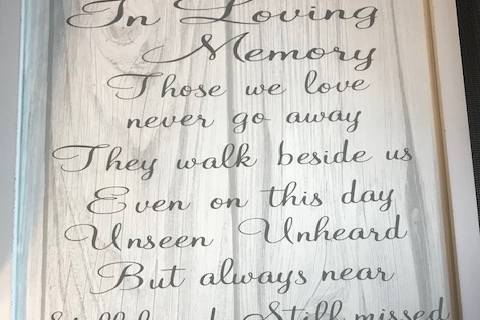 In Loving
Memory
Those we love
never go away
They walk beside us
Even on this day
Unseen Unheard
But always near
Still loved Still missed